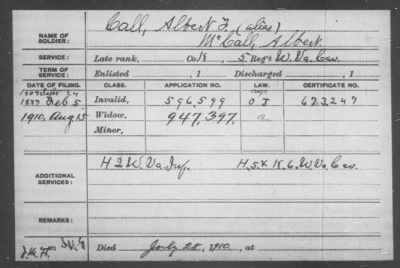 NAME OF SOLDIER: Call, Albert F. (alias)
McCall, Albert.
SERVICE: Late rank, Co K, 5 Reg't W. Va. Cav.
TERM OF SERVICE: Enlisted , 1 Discharged , 1
DATE OF FILING. CLASS. APPLICATION NO. LAW. CERTIFICATE NO.
1887 Feb 5. Invalid, 596,599 O I 673,247
1910, Aug 15 Widow, 947,397. a
Minor,
ADDITIONAL SERVICES: H 2 W. Va. Inf. H. & K 6. W. Va. Cav.
REMARKS:
Died July 28, 1910, at